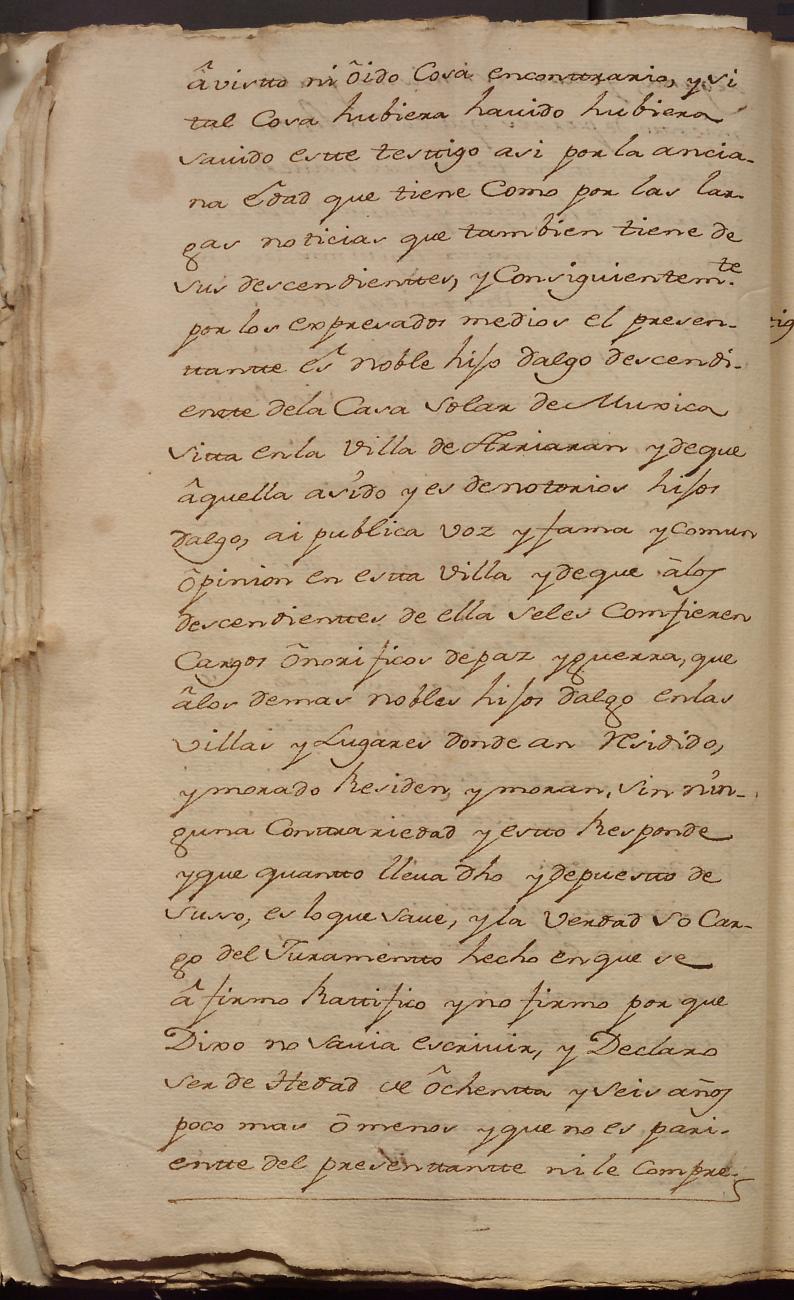 âvistto ni ôido Cosa enconttrario, y si
tal Cosa hubiera hauido hubiera
sauido estte testtigo asi por la ancia-
na êdad que tiene Como por las lar-
gas noticias que tambien tiene de
sus descendienttes, y Consiguientem.te
por los expresados medios el presen-
ttantte es noble hijo dalgo descendi-
entte dela Casa Solar de Muxica
sitta en la Villa de Arriaran y deque
âquella asido y es denotorios hijos
dalgo, ai publica voz y fama y Comun
ôpinion en estta Villa y deque âlos
descendienttes de ella seles Comfieren
Cargos ônorificos depaz yguerra, que
âlos demas nobles hijos dalgo enlas
Villas y Lugares donde an rresidido,
y morado Residen, y moran, sin nin-
guna Conttrariedad y estto Responde
yque quantto lleua dho y depuestto de
suso, es loque saue, y la verdad so Car-
go del Juramentto hecho enque se
âfirmo Rattifico y no firmo por que
Dixo no sauia escriuir, y Declaro
ser de Hedad de ôchentta y seis años
poco mas ô menos yque no es pari-
entte del presenttantte ni le Compre-